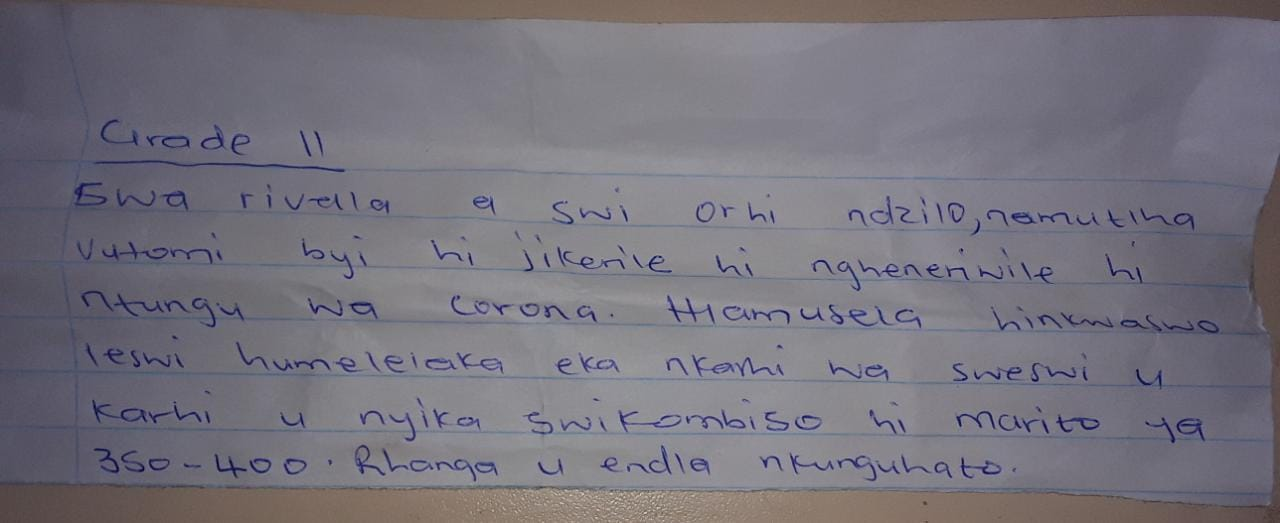 Grade 11
Swa rivella a swi orhi ndzilo, namutlha
Vutomi byi hi jikerile hi ngheneriwile hi
ntungu wa corona. Hlamusela hinkwaswo
leswi humelelaka eka nkarhi wa sweswi u
karhi u nyika swikombiso hi marito ya
350-400. Rhanga u endla nkunguhato.